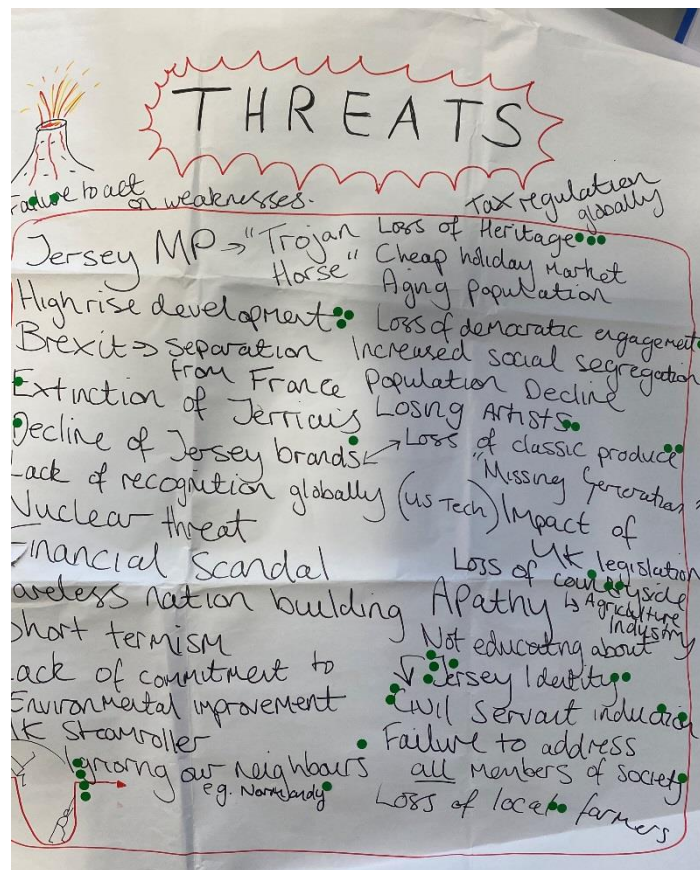 THREATS
Failure to act
on weaknesses.
Tax regulation
globally
Jersey MP → "Trojan
Horse"
High rise development
Brexit ⇒ separation
from France
Extinction of Jerriais
Decline of Jersey brands
Lack of recognition globally (US Tech)
Nuclear threat
Financial Scandal
Careless nation building
Short termism
Lack of commitment to
Environmental improvement
UK Steamroller
Ignoring our neighbours
eg. Normandy
Loss of Heritage
Cheap holiday Market
Aging population
Loss of demaratic engagement
Increased social segregation
Population Decline
Losing Artists
Loss of classic produce
"Missing Generation"
Impact of
UK legislation
Loss of countryside
↳ Agriculture
Industry
Apathy
Not educating about
Jersey Identity
Civil Servant induction
Failure to address
all Members of society
Loss of local farmers